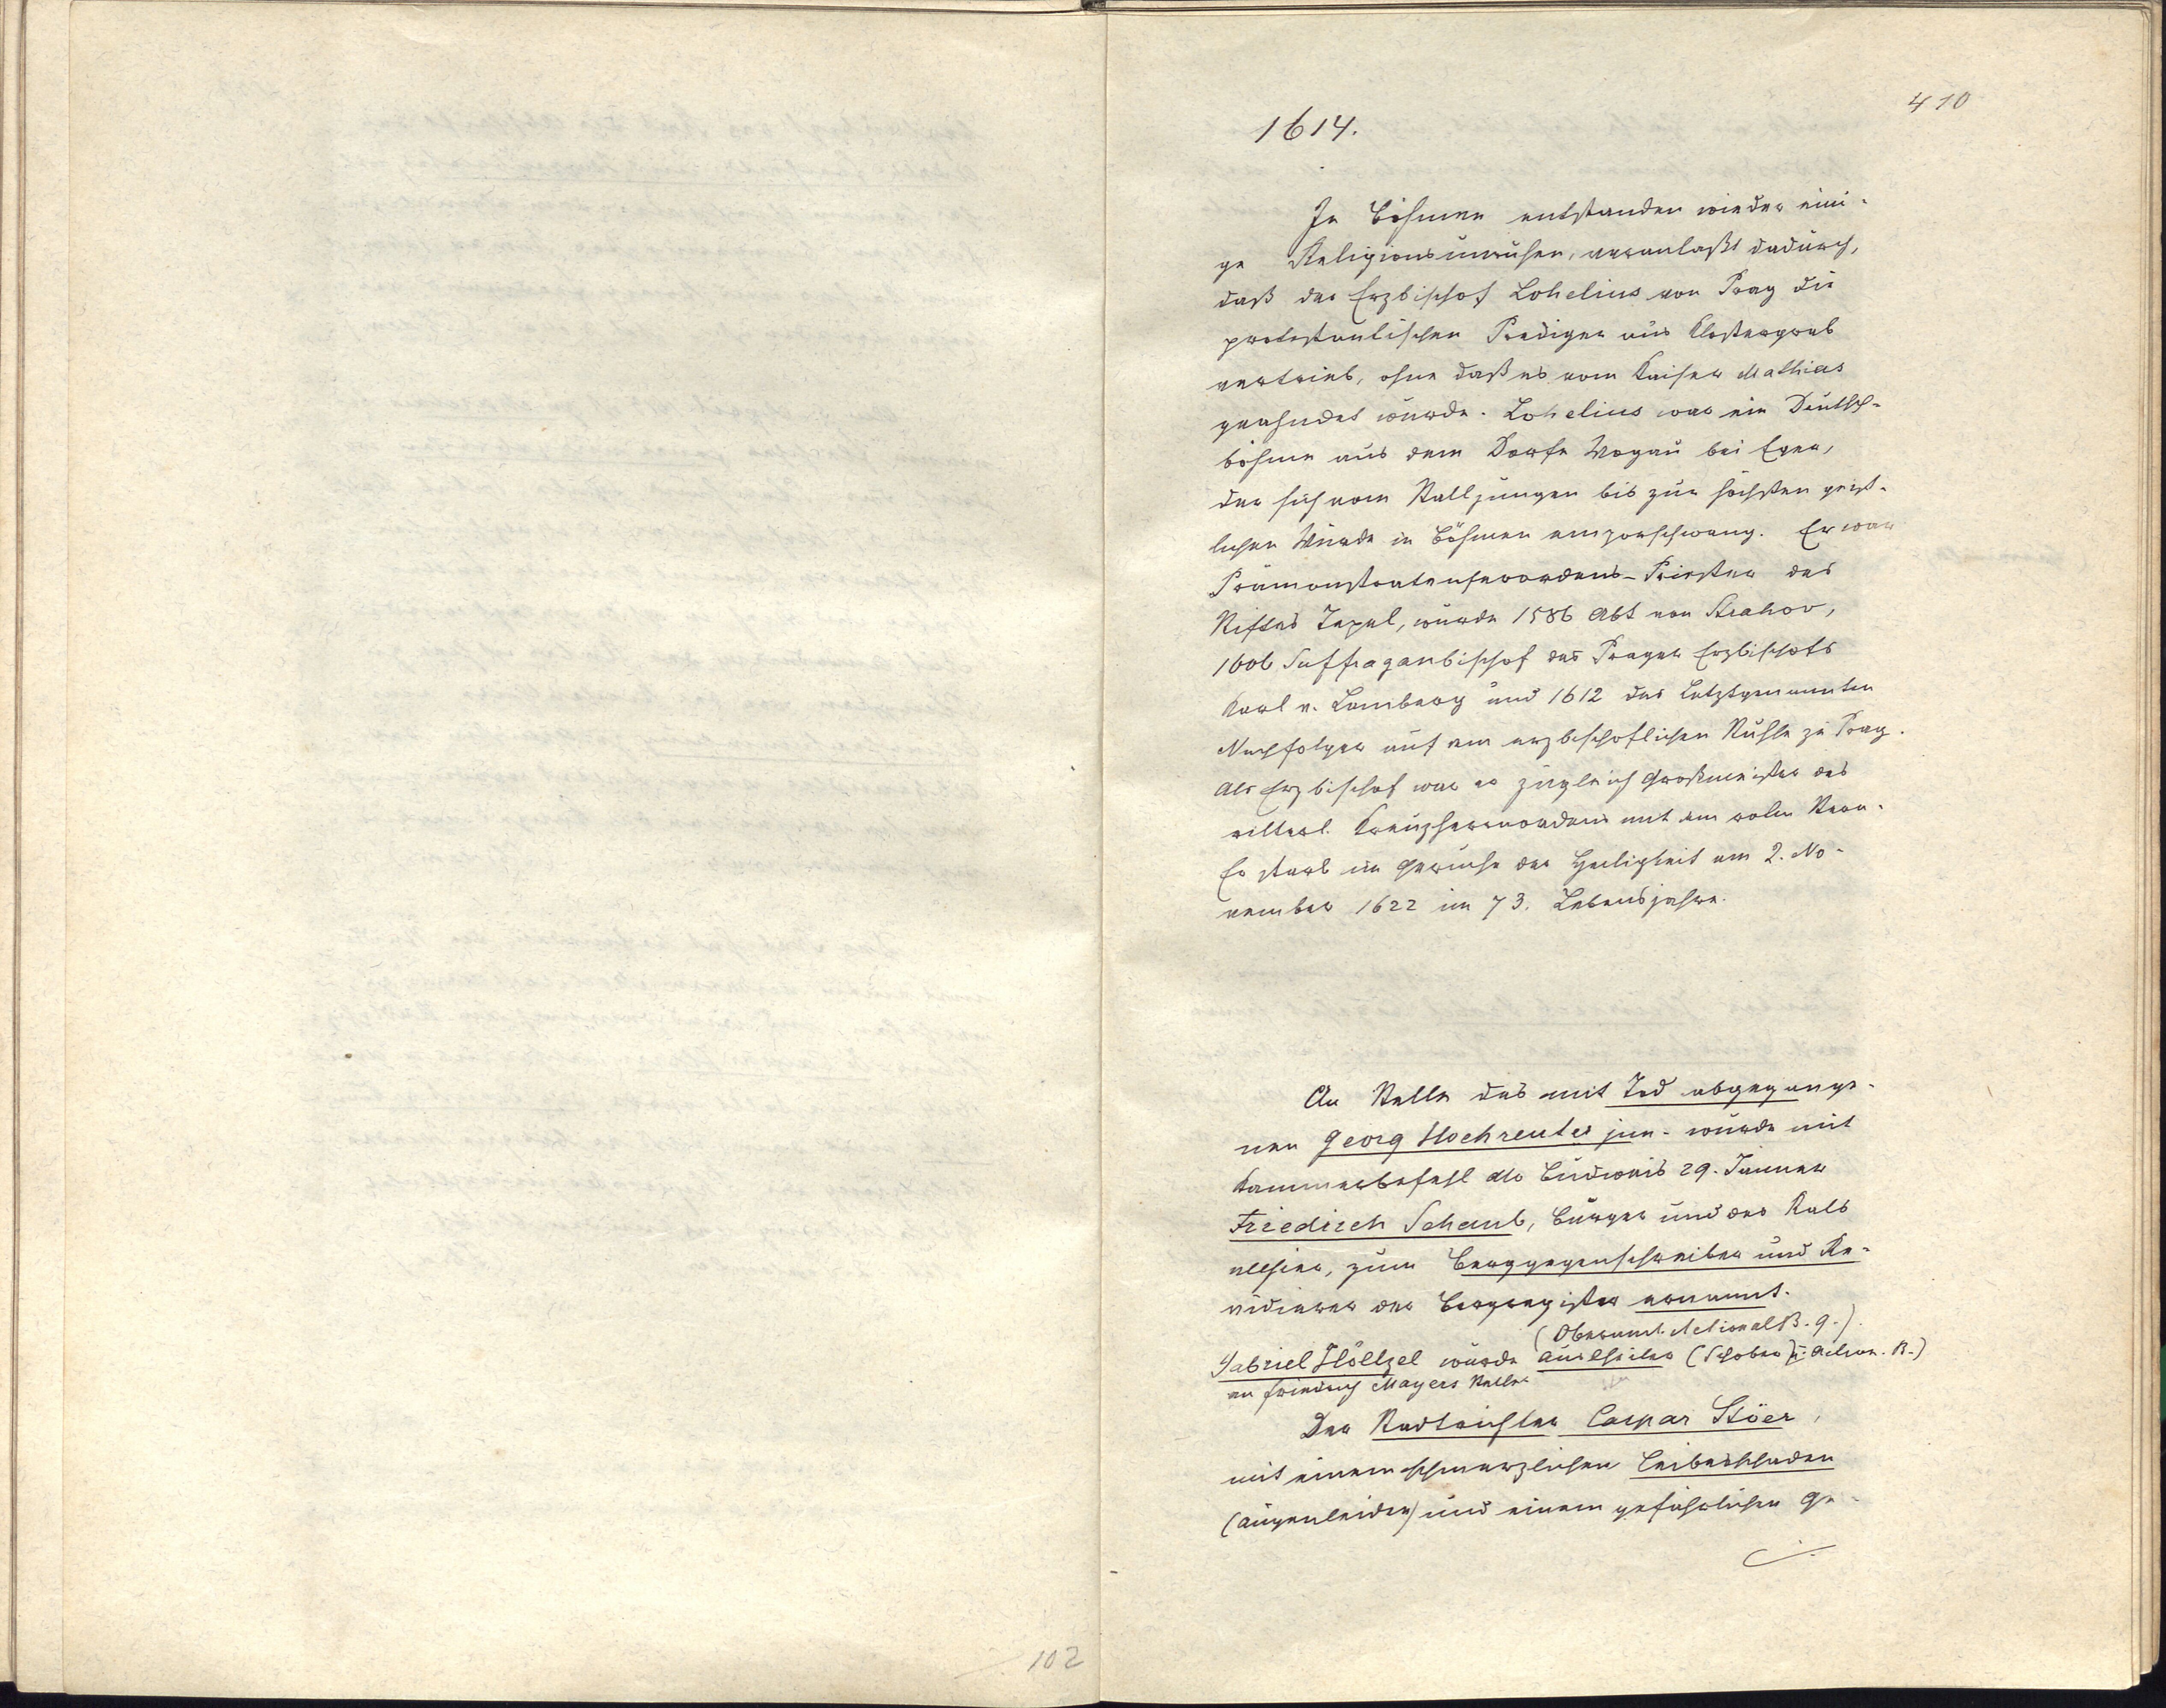 410
1614.
In Böhmen entstanden wieder eini-
ge Religionsunruhen, veranlaßt dadurch,
daß der Erzbischof Lohelius von Prag die
protestantischen Prediger aus Klostergrab
vertrieb, ohne daß es vom Kaiser Mathias
geahndet wurde. Lohelius war ein Deutsch-
böhme aus dem Dorfe Wogau bei Eger,
der sich vom Stalljungen bis zur höchsten geist-
lichen Würde in Böhmen emporschwang. Er war
Prämonstratenserordens-Priester des
Stiftes Tepel, wurde 1586 Abt von Strahov,
1606 Suffraganbischof des Prager Erzbischofs
Karl v. Lamberg und 1612 des Letztgenannten
Nachfolger auf dem erzbischöflichen Stuhle zu Prag.
Als Erzbischof war er zugleich Großmeister des
ritterl. Kreuzherrnordens mit dem roten Stern.
Er starb im Geruche der Heiligkeit am 2. No-
vember 1622 im 73. Lebensjahre.
An Stelle des mit Tod abgegange-
nen Georg Hochreuter jun. wurde mit
Kammerbefehl dto Budweis 29. Jänner
Friedrich Schaub, Bürger und des Rats
allhier, zum Berggegenschreiber und Re-
vidierer der Bergregister ernannt.
(Oberamt.
Gabriel Höltzel wurde Austheiler (Schober)
an Friedrich Mayers Stelle
Der Stadtrichter Caspar Stöer,
mit einem schmerzlichen Leibesschaden
(Augenleiden) und einem gefährlichen Ge-
./.
102